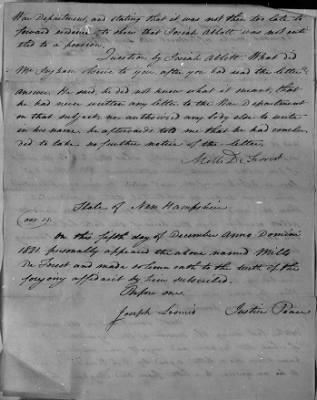 War Department, and stating that it was not then too late to
forward evidence, to shew that Josiah Abbott was not enti
tled to a pension.
Question by Josiah Abbott. What did
Mr. say to you after you had read the letter.
Answer. He said, he did not know what it meant, that
he had never written any letter to the War Department
on that subject, nor authorized any body else to write
in his name. he afterwards told me that he had conclu
ded to take no further notice of the letter.
Mills De Forest
State of New Hampshire
ss.
On this fifth day of December Anno Domini
personally appeared the above named Mills
De Forest and made solemn oath to the truth of the
foregoing affidavit by him subscribed.
Before me
Joseph Justice Peace